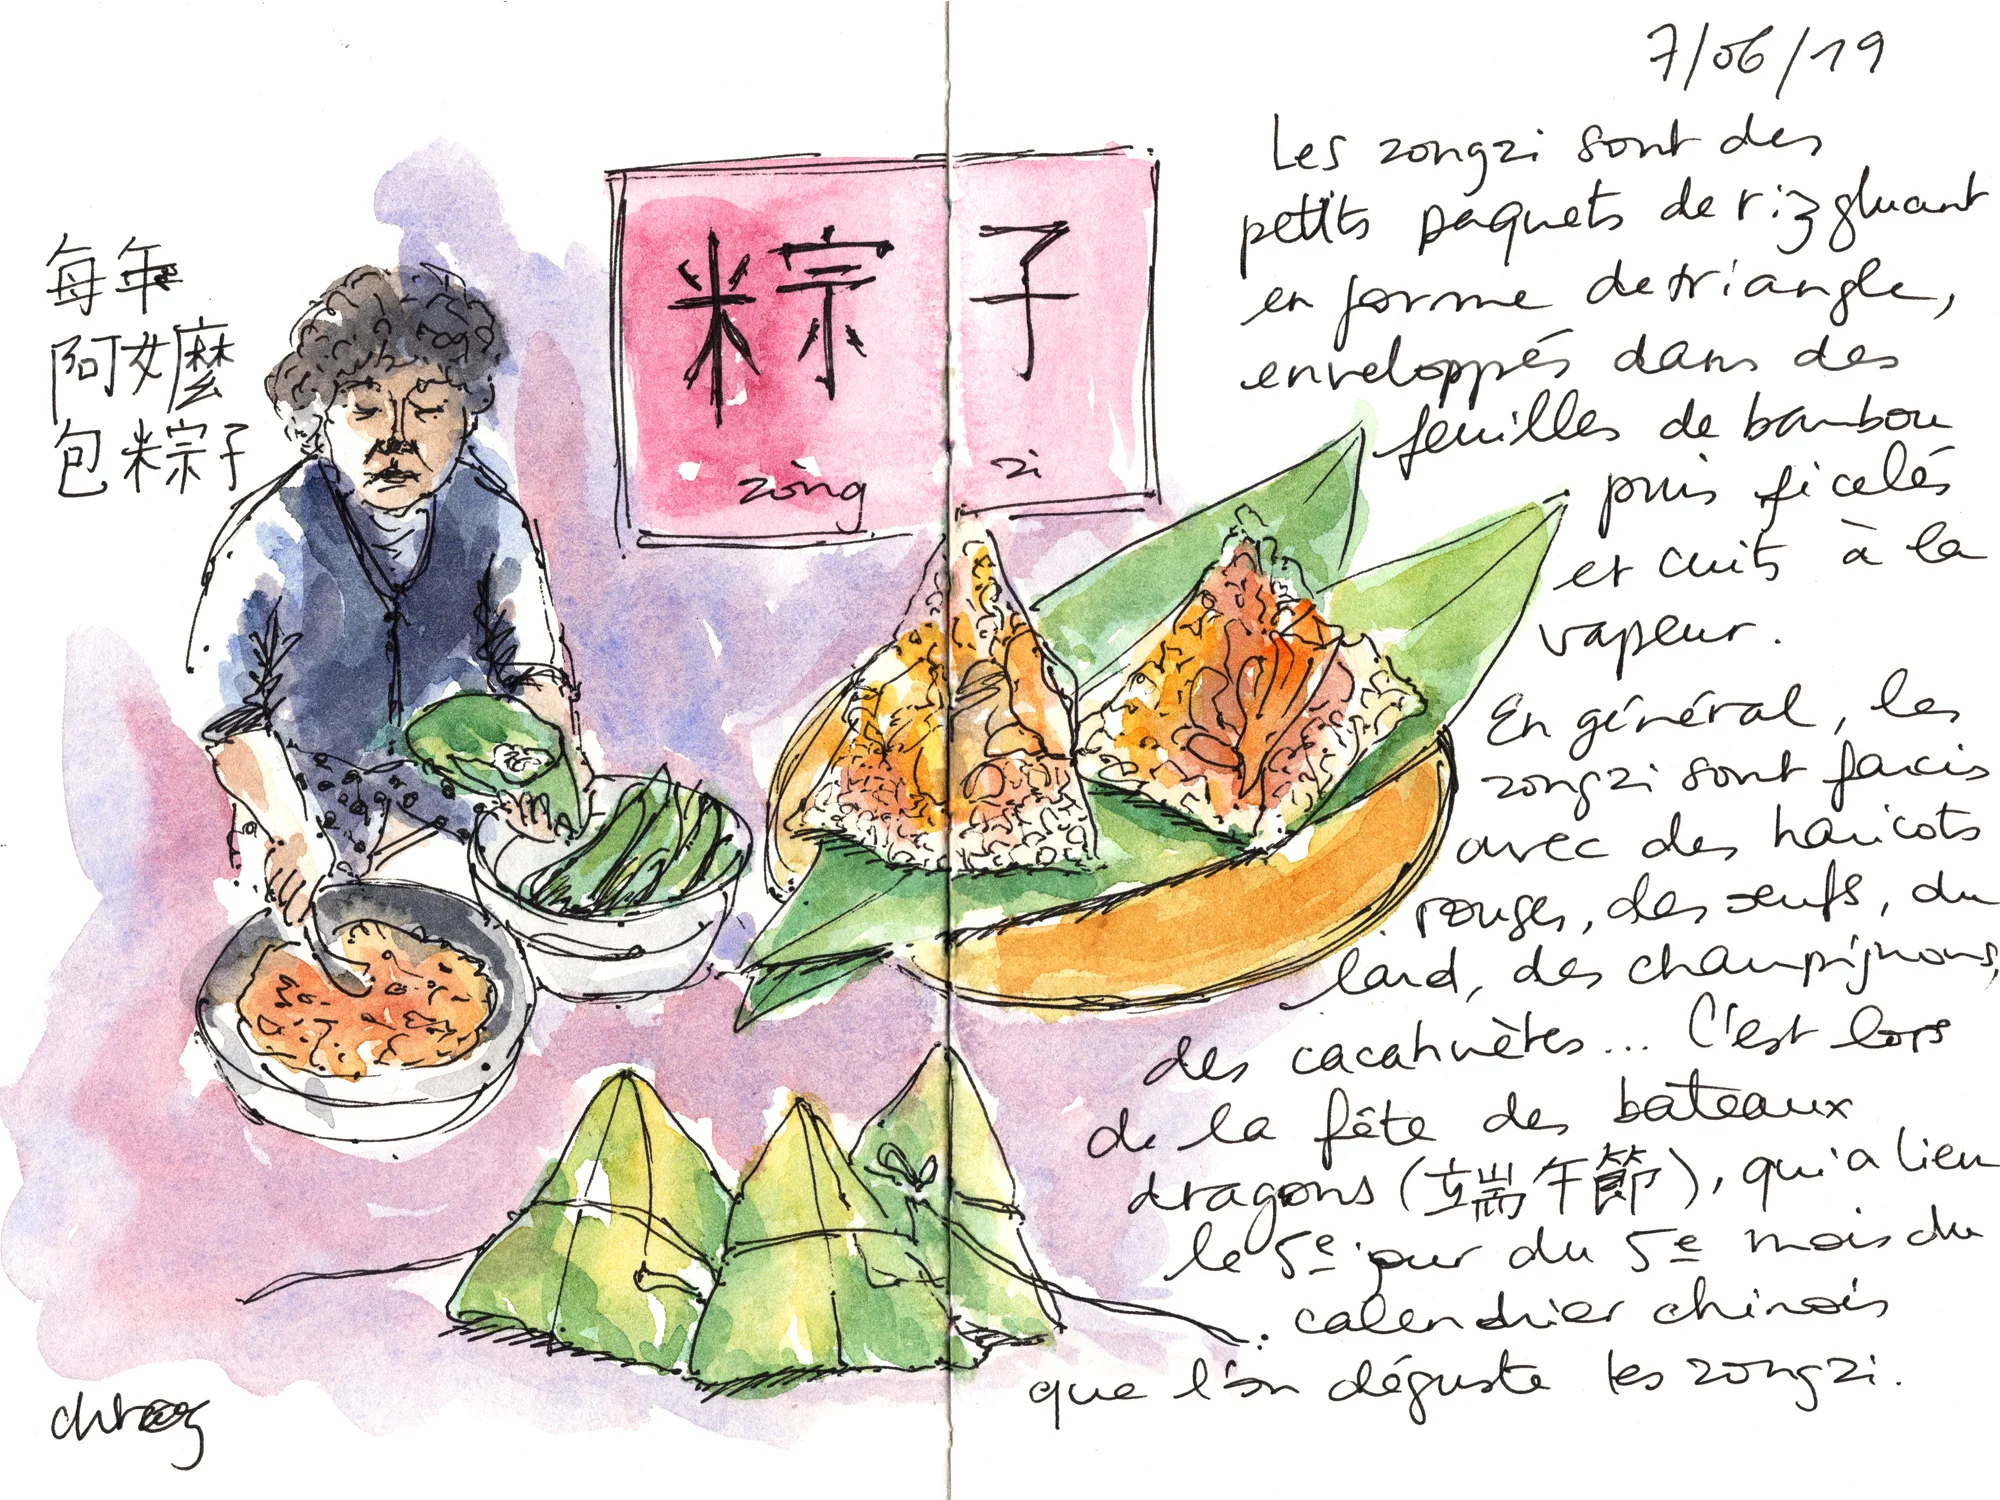 每年
阿嬤
包粽子
粽子
zòng zi
7/06/19
Les zongzi sont des
petits paquets de riz gluant
en forme de triangle,
enveloppés dans des
feuilles de bambou
puis ficelés
et cuits à la
vapeur.
En général, les
zongzi sont farcis
avec des haricots
rouges, des œufs, du
lard, des champignons,
des cacahuètes... C'est lors
de la fête des bateaux
dragons (端午節), qui a lieu
le 5e jour du 5e mois du
calendrier chinois
que l'on déguste les zongzi.